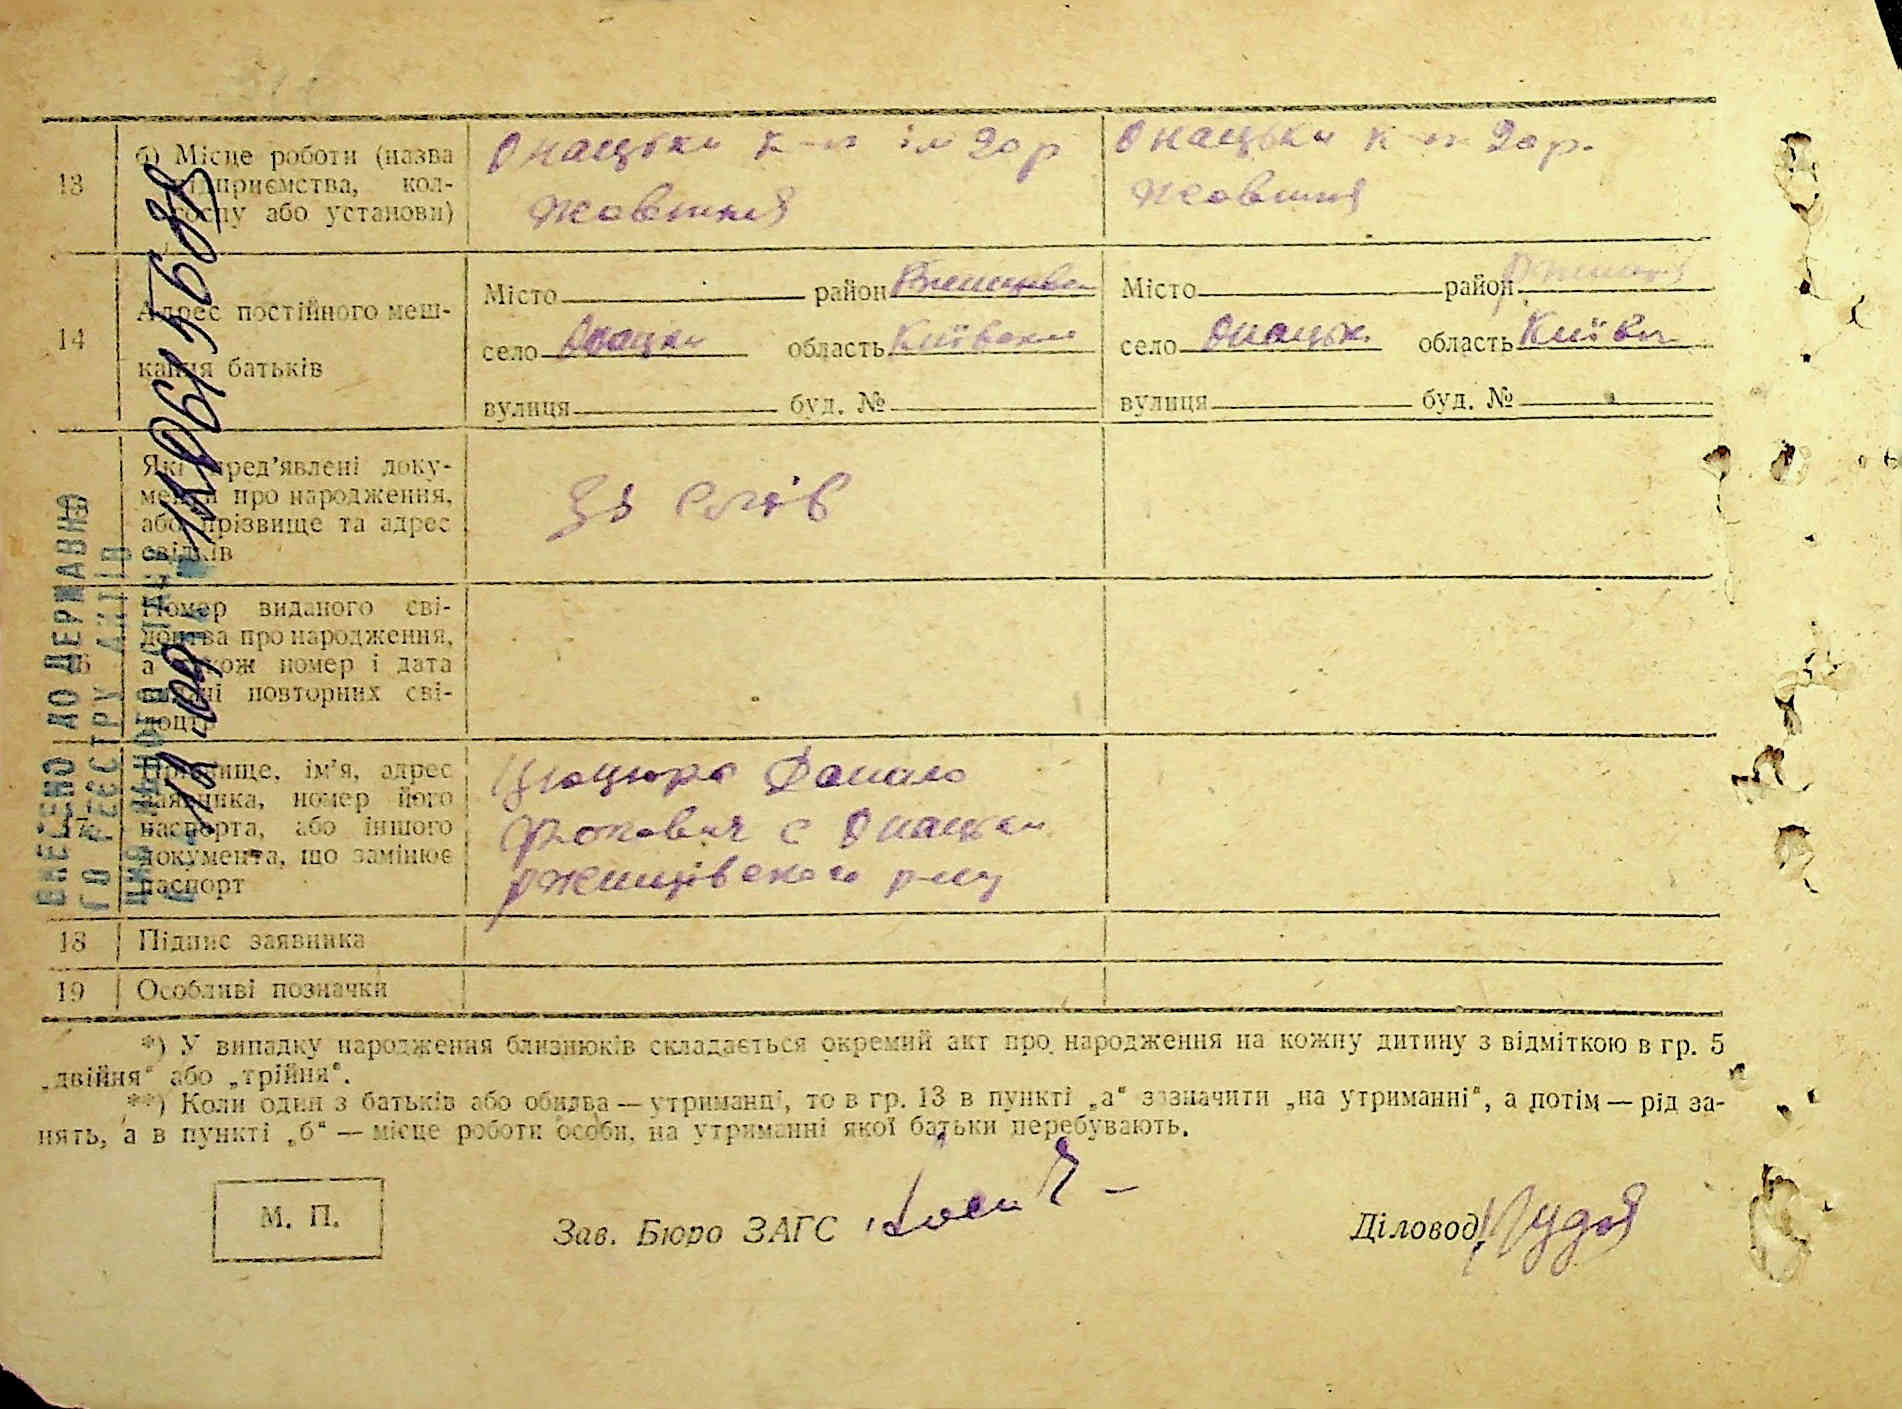 13 б) Місце роботи (назва підприємства, колгоспу або установи) Онацьки к-п ім 20 р Жовтня Онацьки к-п 20 р. Жовтня
14 Адрес постійного мешкання батьків
Місто район Ржищівськ Місто район Ржищів
село Онацьки область Київська село Онацьк. область Київ
вулиця буд. № вулиця буд. №
Які пред'явлені документи про народження, або прізвище та адрес свідків За слів
16 Номер виданого свідоцтва про народження, а також номер і дата видачі повторних свідоцтв
17 Прізвище, ім'я, адрес заявника, номер його паспорта, або іншого документа, що замінює паспорт
Цюцюра Данило
с Онацьки
Ржищівського р-ну
18 Підпис заявника
19 Особливі позначки
ВНЕСЕНО ДО ДЕРЖАВНОГО РЕЄСТРУ АКТІВ
*) У випадку народження близнюків складається окремий акт про народження на кожну дитину з відміткою в гр. 5
„двійня“ або „трійня“.
**) Коли один з батьків або обидва — утриманці, то в гр. 13 в пункті „а“ зазначити „на утриманні“, а потім — рід за-
нять, а в пункті „б“ — місце роботи особи, на утриманні якої батьки перебувають.
М. П. Зав. Бюро ЗАГС Діловод